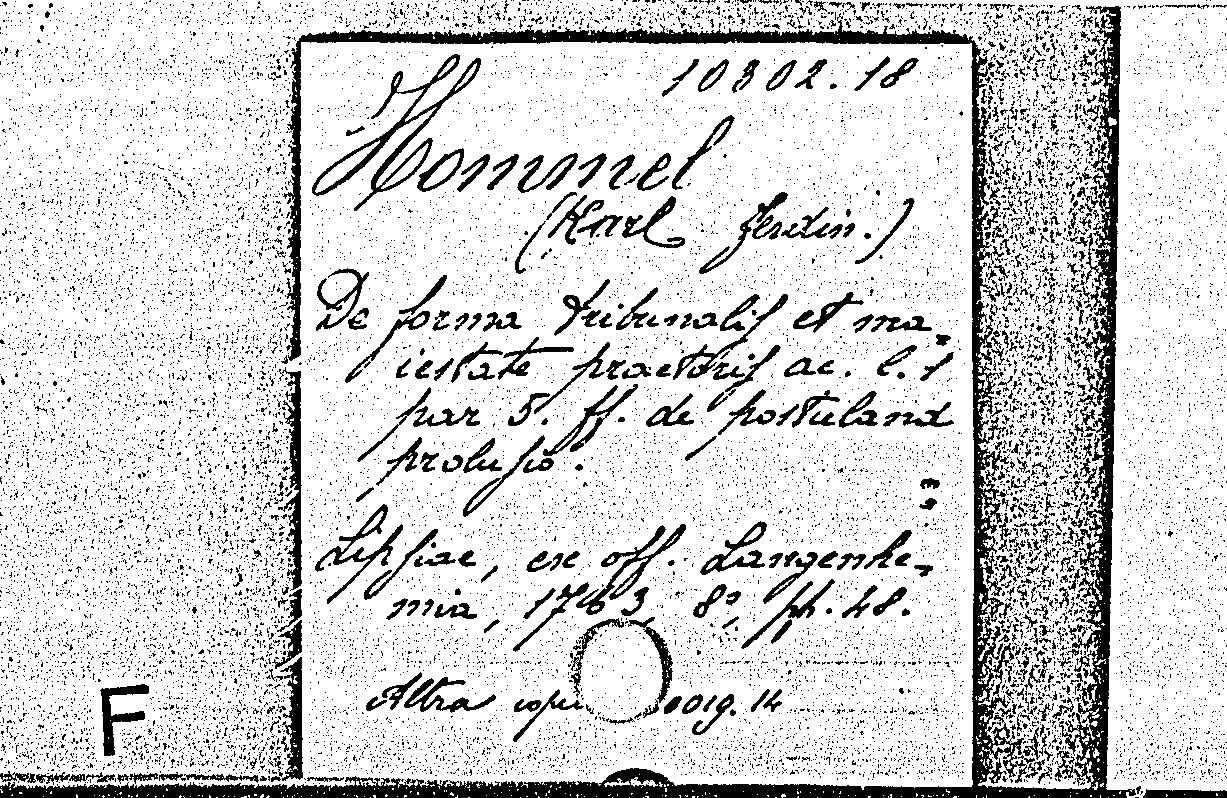 10302.18
Hommel
(Karl Ferdin.)
De forma tribunalis et ma-
iestate praetoris ac. l. 1
par 5. ff. de postuland
prolusio.
Lipsiae, ex off. Langenhe-
mia, 1763, 8°, pp. 48.
Altra 019. 14
F